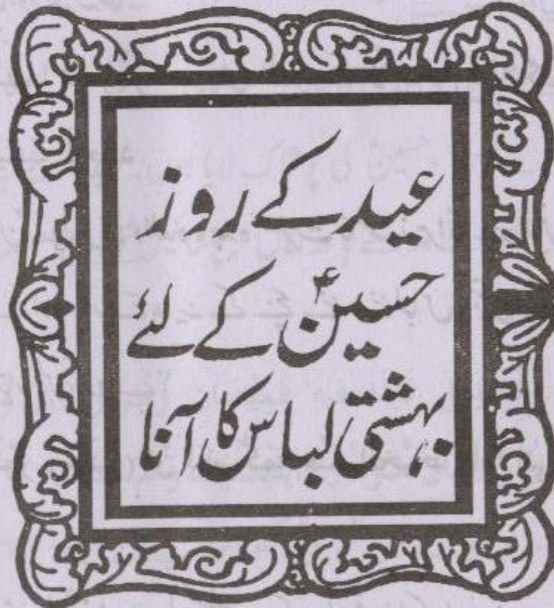 عید کے روز
حسینؑ کے لئے
بہشتی لباس کا آنا